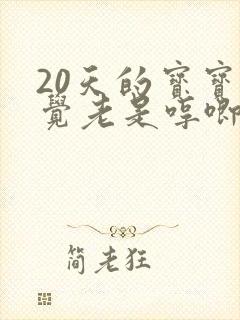 20天的寳寳
覺老是哼唧
简老狂